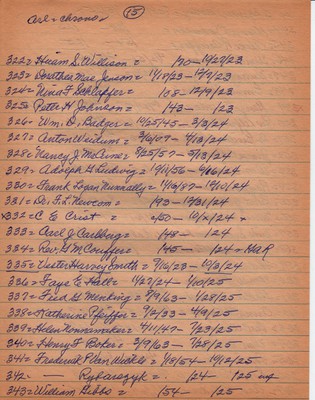 (15)
322= Hiram S. Willison = 190 - 10/27/23
323= Dorothea Mae Jenson = 11/18/23 - 12/7/23
324= Nina F. Schlaffer = 108 - 12/9/23
325= Pete H. Johnson = 143 - 123
326= Wm. D. Badger = 10/25/45 - 3/3/24
327= Anton Weidum = 3/6/09 - 4/13/24
328= Nancy J. McCune = 9/25/57 - 5/13/24
329= Adolph G. Ludwig = 10/11/56 - 6/26/24
330= Frank Logan Nunnally = 10/19/87 - 10/10/24
331= Dr. F. L. Newcom = 193 - 12/31/24
x332= C E Crist = 150 -
333= Carl J. Carlberg = 148 - 124
334= Rev. G. M. Couffer = 145 - 124 =
335= Vester Harvey Smith = 9/10/23 - 10/3/24
336= Faye E. Hall = 1/27/24 - 1/10/25
337= Fred G. Menking = 8/9/63 - 1/28/25
338= Katherine Pfeiffer = 7/2/33 - 4/9/25
339= Helen Nonnamaker = 4/11/47 - 7/23/25
340= Henry F. Boker = 3/9/63 - 7/28/25
341= Frederick P. Van Winkle = 1/8/54 - 10/12/25
342= — Rybarszyk = 124 - 125 inf
343= William Gibbs = 154 - 125